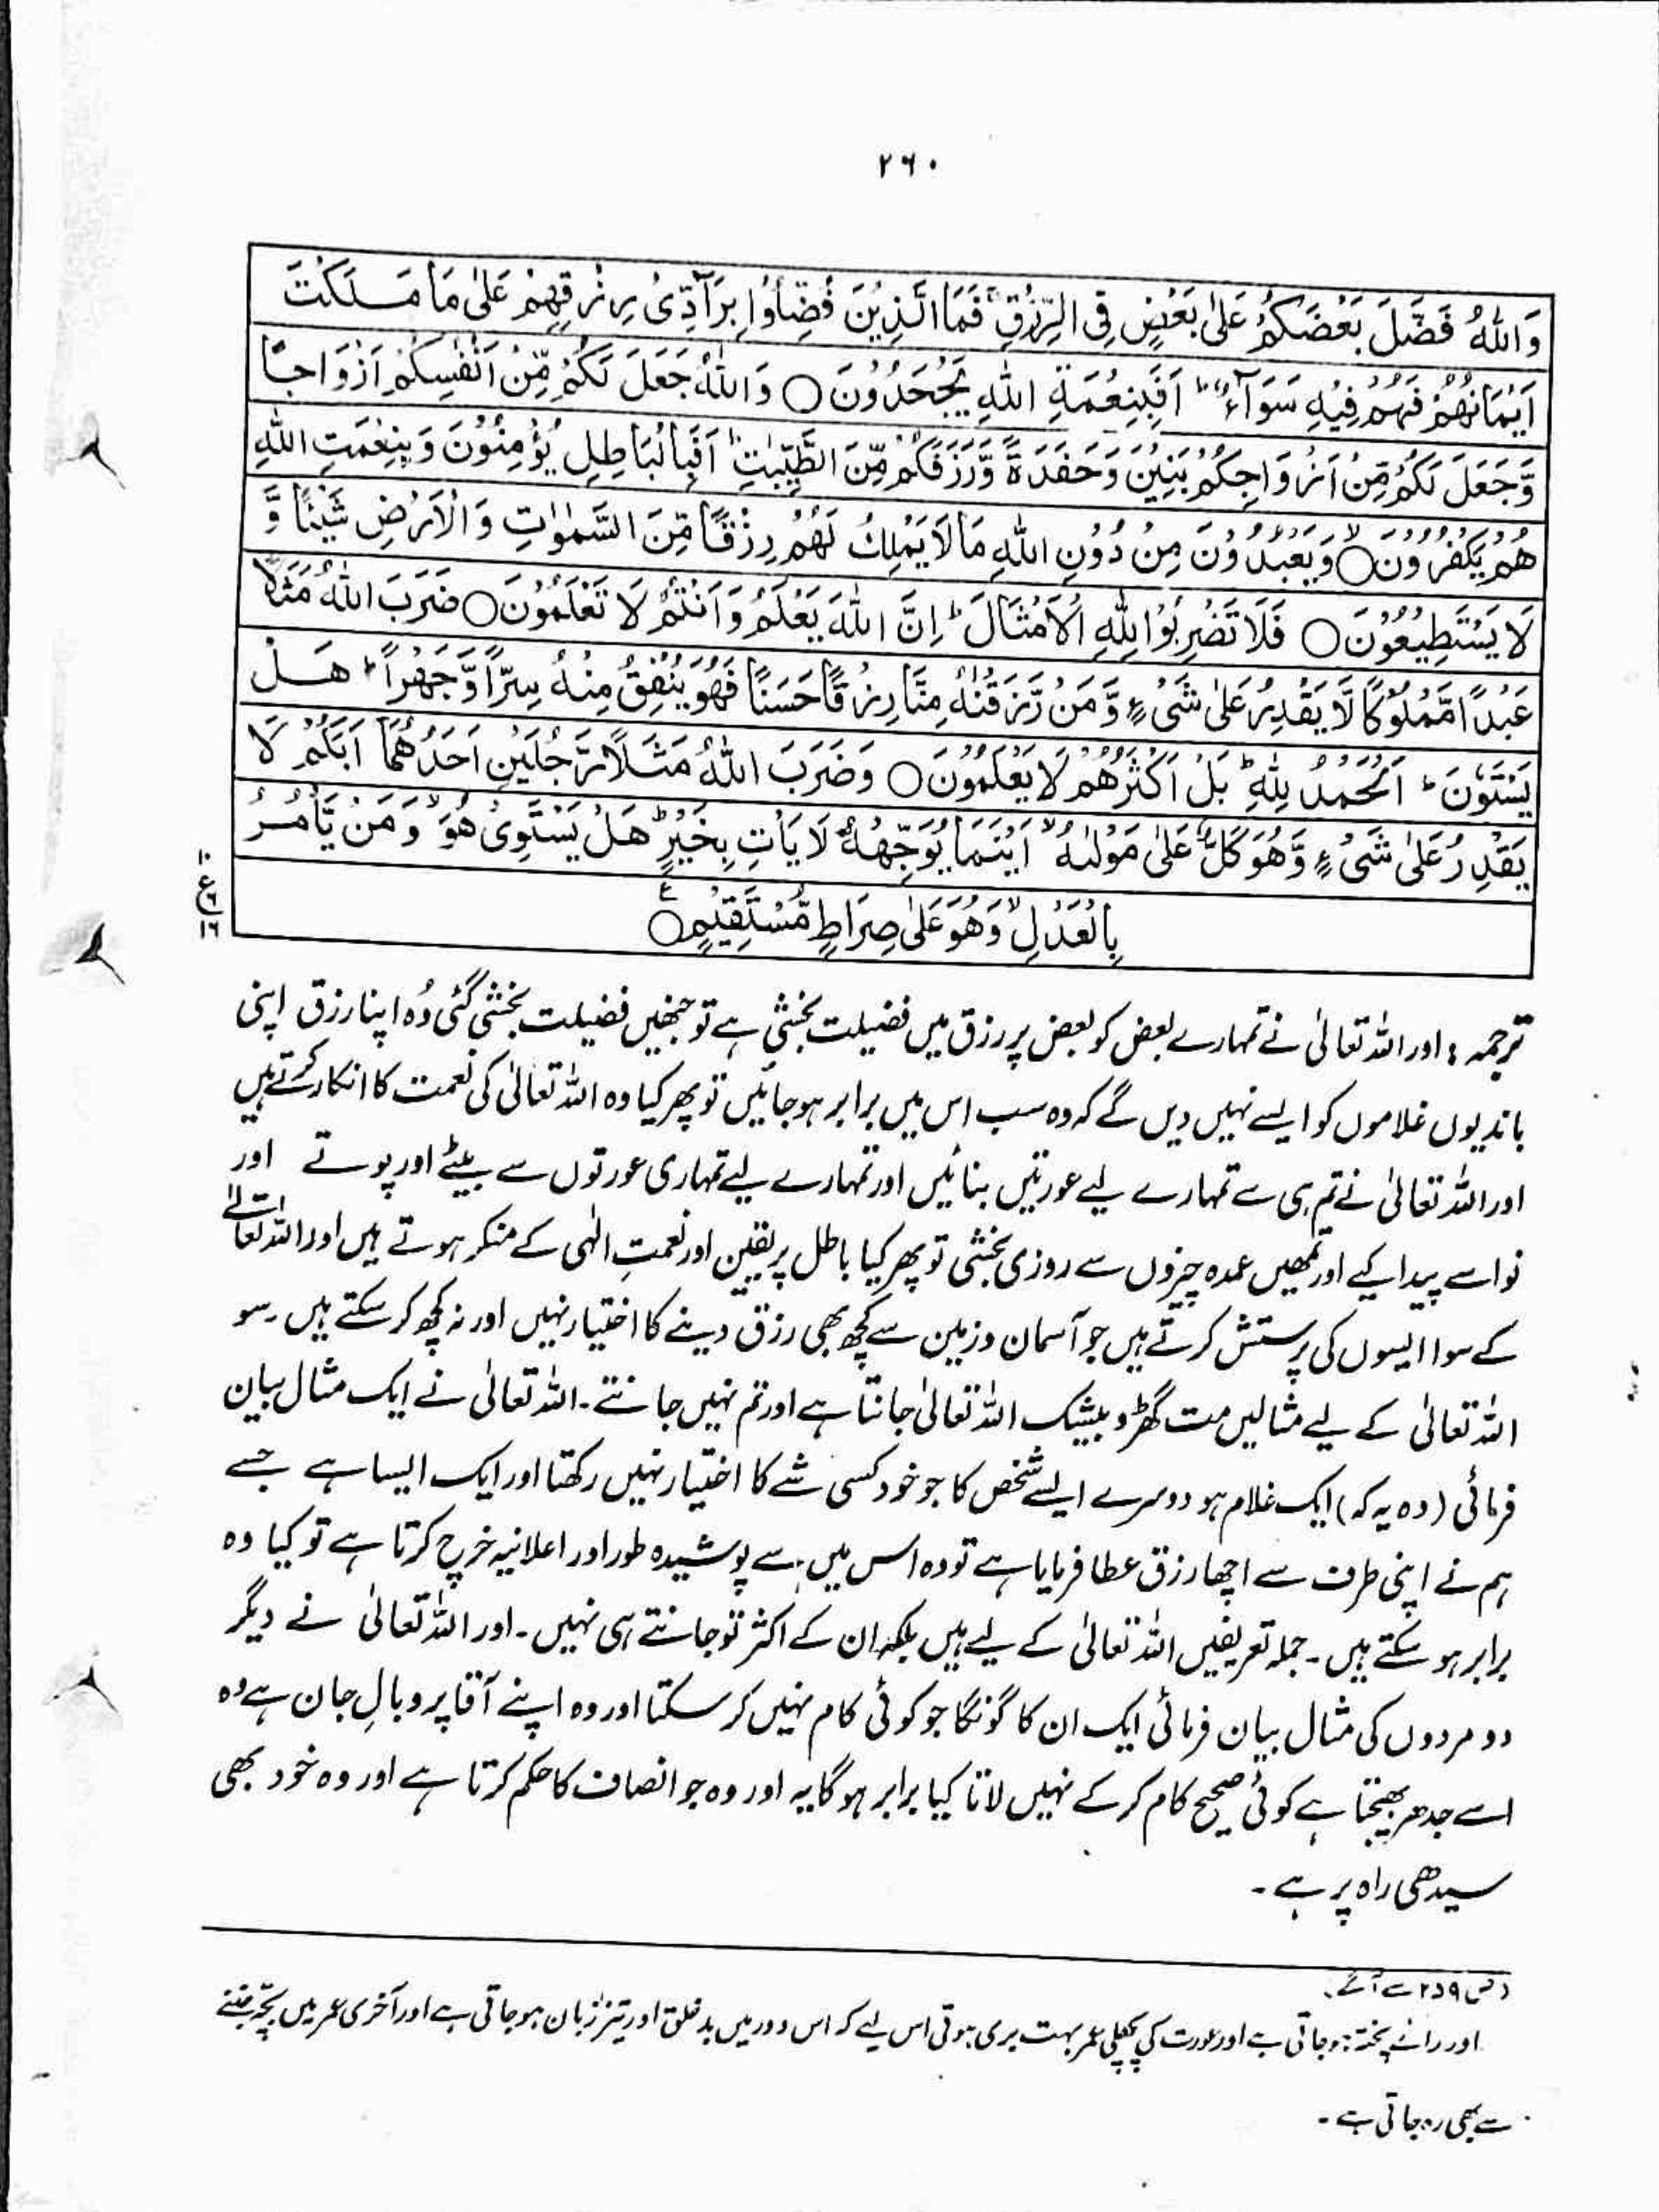 ۲۶۰
وَاللّٰهُ فَضَّلَ بَعْضَكُمْ عَلٰى بَعْضٍ فِى الرِّزْقِ ۚ فَمَا الَّذِيْنَ فُضِّلُوْا بِرَآدِّىْ رِزْقِهِمْ عَلٰى مَا مَلَكَتْ
اَيْمَانُهُمْ فَهُمْ فِيْهِ سَوَآءٌ ؕ اَفَبِنِعْمَةِ اللّٰهِ يَجْحَدُوْنَ ○ وَاللّٰهُ جَعَلَ لَكُمْ مِّنْ اَنْفُسِكُمْ اَزْوَاجًا
وَّجَعَلَ لَكُمْ مِّنْ اَزْوَاجِكُمْ بَنِيْنَ وَحَفَدَةً وَّرَزَقَكُمْ مِّنَ الطَّيِّبٰتِ ؕ اَفَبِالْبَاطِلِ يُؤْمِنُوْنَ وَبِنِعْمَتِ اللّٰهِ
هُمْ يَكْفُرُوْنَ ○ۙ وَيَعْبُدُوْنَ مِنْ دُوْنِ اللّٰهِ مَا لَا يَمْلِكُ لَهُمْ رِزْقًا مِّنَ السَّمٰوٰتِ وَالْاَرْضِ شَيْئًا وَّ
لَا يَسْتَطِيْعُوْنَ ○ فَلَا تَضْرِبُوْا لِلّٰهِ الْاَمْثَالَ ؕ اِنَّ اللّٰهَ يَعْلَمُ وَاَنْتُمْ لَا تَعْلَمُوْنَ ○ ضَرَبَ اللّٰهُ مَثَلًا
عَبْدًا مَّمْلُوْكًا لَّا يَقْدِرُ عَلٰى شَىْءٍ وَّمَنْ رَّزَقْنٰهُ مِنَّا رِزْقًا حَسَنًا فَهُوَ يُنْفِقُ مِنْهُ سِرًّا وَّجَهْرًا ؕ هَلْ
يَسْتَوٗنَ ؕ اَلْحَمْدُ لِلّٰهِ ؕ بَلْ اَكْثَرُهُمْ لَا يَعْلَمُوْنَ ○ وَضَرَبَ اللّٰهُ مَثَلًا رَّجُلَيْنِ اَحَدُهُمَا اَبْكَمُ لَا
يَقْدِرُ عَلٰى شَىْءٍ وَّهُوَ كَلٌّ عَلٰى مَوْلٰىهُ ۙ اَيْنَمَا يُوَجِّهْهُّ لَا يَاْتِ بِخَيْرٍ ؕ هَلْ يَسْتَوِىْ هُوَ ۙ وَمَنْ يَّاْمُرُ
بِالْعَدْلِ ۙ وَهُوَ عَلٰى صِرَاطٍ مُّسْتَقِيْمٍ ○ ع
۱۰
ع ۶
۱۶
ترجمہ: اور اللہ تعالیٰ نے تمہارے بعض کو بعض پر رزق میں فضیلت بخشی ہے تو جنھیں فضیلت بخشی گئی وُہ اپنا رزق اپنی
باندیوں غلاموں کو ایسے نہیں دیں گے کہ وہ سب اس میں برابر ہو جائیں تو پھر کیا وہ اللہ تعالیٰ کی نعمت کا انکار کرتے ہیں
اور اللہ تعالیٰ نے تم ہی سے تمہارے لیے عورتیں بنائیں اور تمہارے لیے تمہاری عورتوں سے بیٹے اور پوتے اور
نواسے پیدا کیے اور تمھیں عمدہ چیزوں سے روزی بخشی تو پھر کیا باطل پر یقین اور نعمتِ الٰہی کے منکر ہوتے ہیں اور اللہ تعالیٰ
کے سوا ایسوں کی پرستش کرتے ہیں جو آسمان و زمین سے کچھ بھی رزق دینے کا اختیار نہیں اور نہ کچھ کر سکتے ہیں۔ سو
اللہ تعالیٰ کے لیے مثالیں مت گھڑو بیشک اللہ تعالیٰ جانتا ہے اور تم نہیں جانتے۔ اللہ تعالیٰ نے ایک مثال بیان
فرمائی (وہ یہ کہ) ایک غلام ہو دوسرے ایسے شخص کا جو خود کسی شے کا اختیار نہیں رکھتا اور ایک ایسا ہے جسے
ہم نے اپنی طرف سے اچھا رزق عطا فرمایا ہے تو وہ اس میں سے پوشیدہ طور اور اعلانیہ خرچ کرتا ہے تو کیا وہ
برابر ہو سکتے ہیں۔ جملہ تعریفیں اللہ تعالیٰ کے لیے ہیں بلکہ ان کے اکثر تو جانتے ہی نہیں۔ اور اللہ تعالیٰ نے دیگر
دو مردوں کی مثال بیان فرمائی ایک ان کا گونگا جو کوئی کام نہیں کر سکتا اور وہ اپنے آقا پر وبالِ جان ہے وہ
اسے جدھر بھیجتا ہے کوئی صحیح کام کر کے نہیں لاتا کیا برابر ہو گا یہ اور وہ جو انصاف کا حکم کرتا ہے اور وہ خود بھی
سیدھی راہ پر ہے۔
(ص ۲۵۹ سے آگے)
اور رائے پختہ ہو جاتی ہے اور عورت کی پچھلی عمر بہت بری ہوتی اس لیے کہ اس دور میں بد خلق اور تیز زبان ہو جاتی ہے اور آخری عمر میں بچّہ جننے
سے بھی رہ جاتی ہے۔